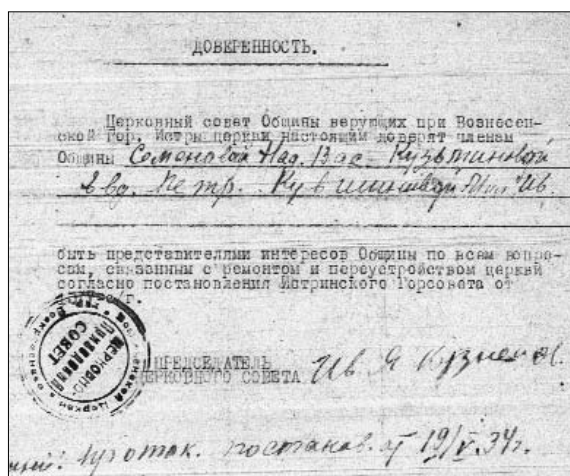 ДОВЕРЕННОСТЬ.
Церковный совет Общины верующих при Вознесен-
ской Гор. Истры церкви настоящим доверят членам
Общины Семеновой Над. Вас. Кузьминовой
Евд. Петр. Кувшиновой Ив.
быть представителями интересов Общины по всем вопро-
сам, связанным с ремонтом и переустройством церкви
согласно постановления Истринского Горсовета от
г.
ЦЕРКОВНО-
ПРИХОДСКИЙ
СОВЕТ
ПРЕДСЕДАТЕЛЬ
ЦЕРКОВНОГО СОВЕТА Ив Я Кузнецов.
постанов. от 19/V.34г.